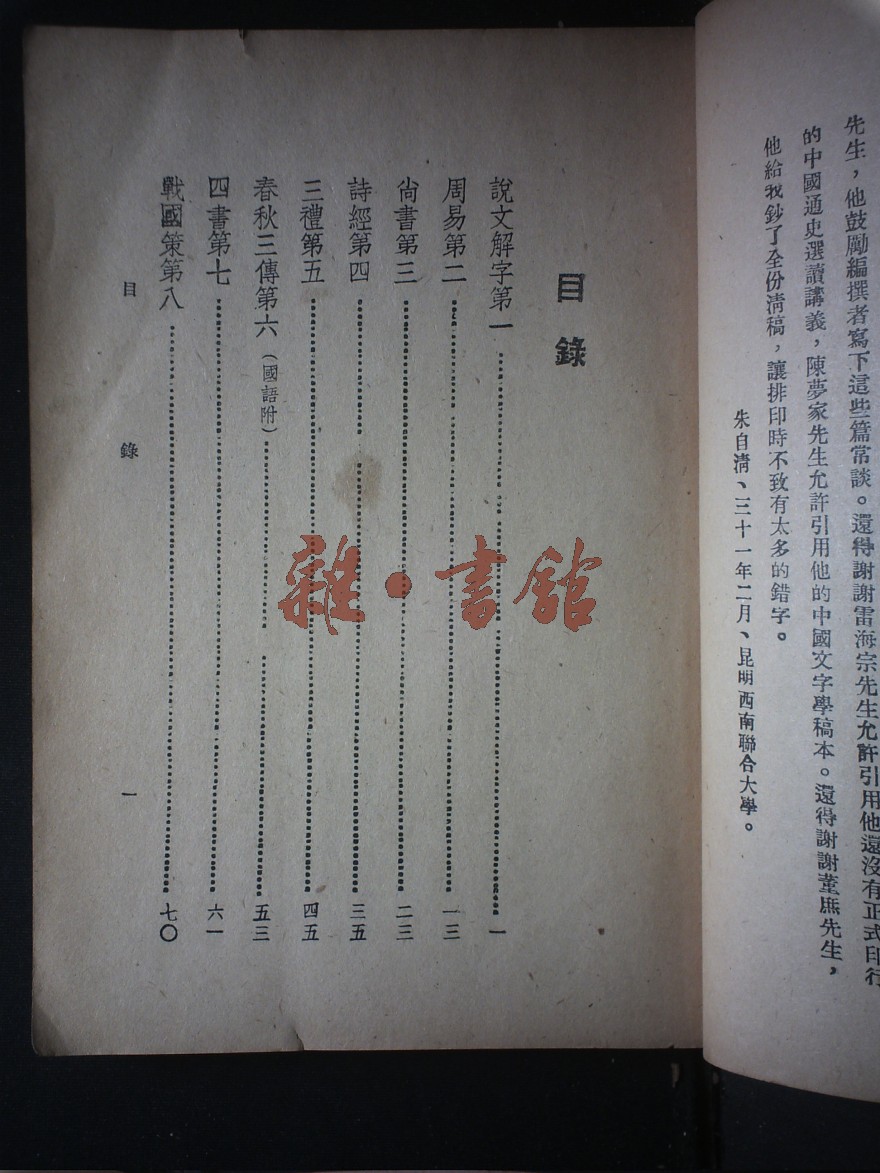 先生，他鼓勵編撰者寫下這些篇常談。還得謝謝雷海宗先生允許引用他還沒有正式印行
的中國通史選讀講義，陳夢家先生允許引用他的中國文字學稿本。還得謝謝董庶先生，
他給我鈔了全份清稿，讓排印時不致有太多的錯字。
朱自清、三十一年二月、昆明西南聯合大學。
目錄
說文解字第一……一
周易第二……一三
尙書第三……二三
詩經第四……三五
三禮第五……四五
春秋三傳第六（國語附）……五三
四書第七……六一
戰國策第八……七〇
目錄 一
雜·書館